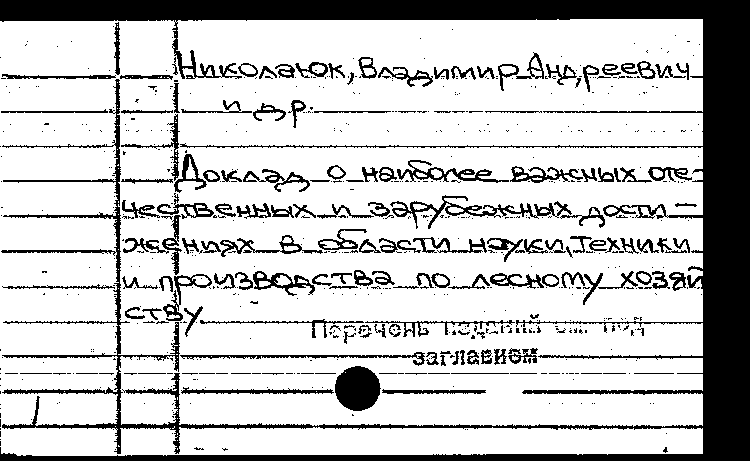 Николаюк, Владимир Андреевич
и др.
Доклад о наиболее важных оте-
чественных и зарубежных дости-
жениях в области науки, техники
и производства по лесному хозяй
ству.
Перечень изданий см. под
заглавием
1